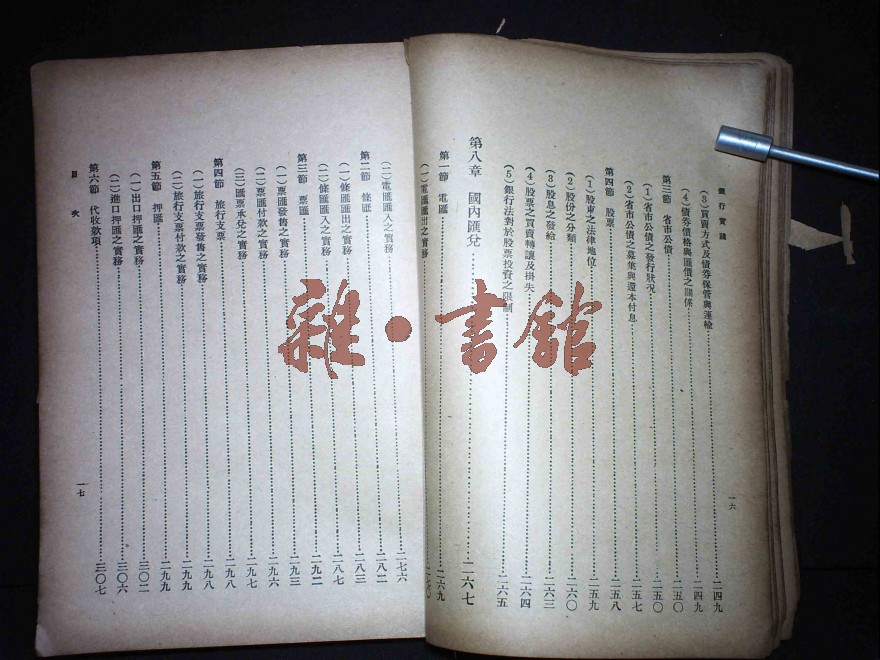 銀行實踐
(3)買賣方式及債券保管與運輸……二四九
(4)債券價格與匯價之關係……二四九
第三節 省市公債……二五〇
(1)省市公債之發行狀況……二五〇
(2)省市公債之募集與還本付息……二五七
第四節 股票……二五八
(1)股東之法律地位……二五九
(2)股份之分類……二六〇
(3)股息之發給……二六三
(4)股票之買賣轉讓及掛失……二六四
(5)銀行法對於股票投資之限制……二六五
第八章 國內匯兌……二六七
第一節 電匯……二六九
(一)電匯匯出之實務
一六
(二)電匯匯入之實務……二七六
第二節 條匯……二八二
(一)條匯匯出之實務……二八三
(二)條匯匯入之實務……二八七
第三節 票匯……二九二
(一)票匯發售之實務……二九三
(二)票匯付款之實務……二九六
(三)匯票承兌之實務……二九七
第四節 旅行支票……二九八
(一)旅行支票發售之實務……二九八
(二)旅行支票付款之實務……二九九
第五節 押匯……二九九
(一)出口押匯之實務……三〇二
(二)進口押匯之實務……三〇六
第六節 代收款項……三〇七
目次
一七
雜·書館